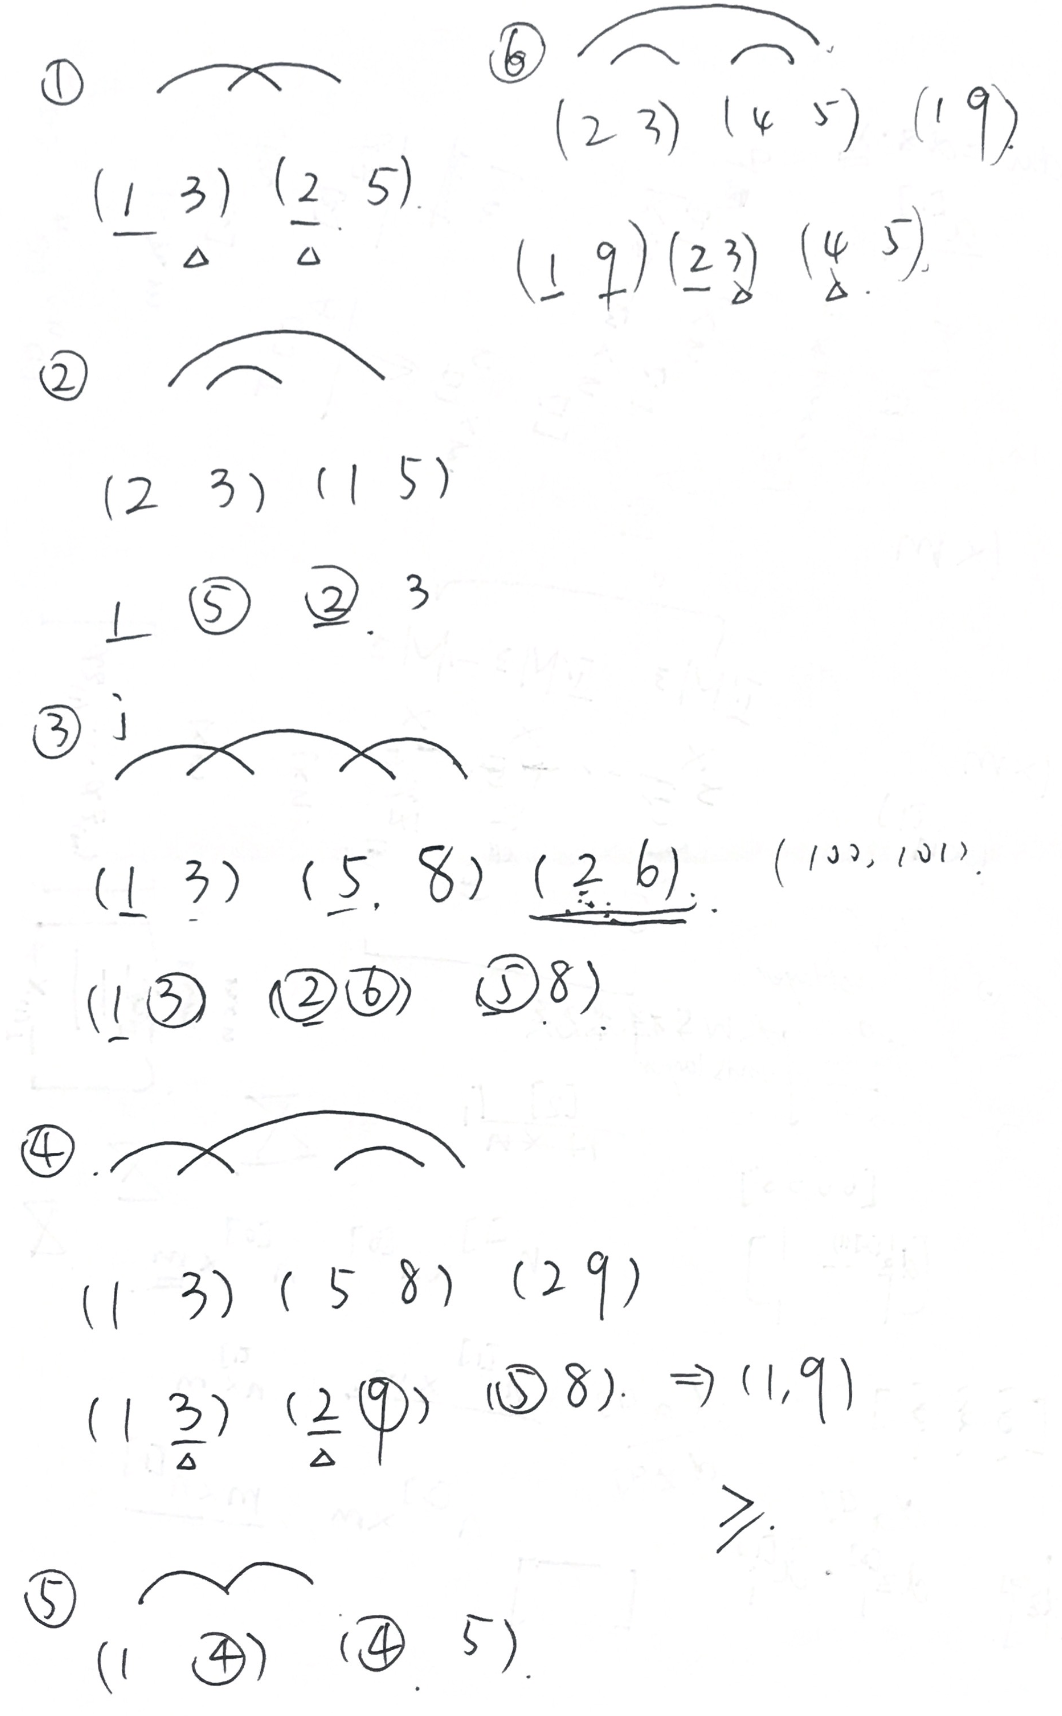 ①
(1 3) (2 5).
②
(2 3) (1 5)
1 ⑤ ② 3
③ j
(1 3) (5. 8) (2 6). (100, 101).
(1 ③) (② ⑥) ⑤ 8).
④
(1 3) (5 8) (2 9)
(1 3) (2 9) (⑤ 8). ⇒ (1, 9)
⩾.
⑤
(1 ④) (④ 5).
⑥
(2 3) (4 5) (1 9).
(1 9) (2 3) (4 5).